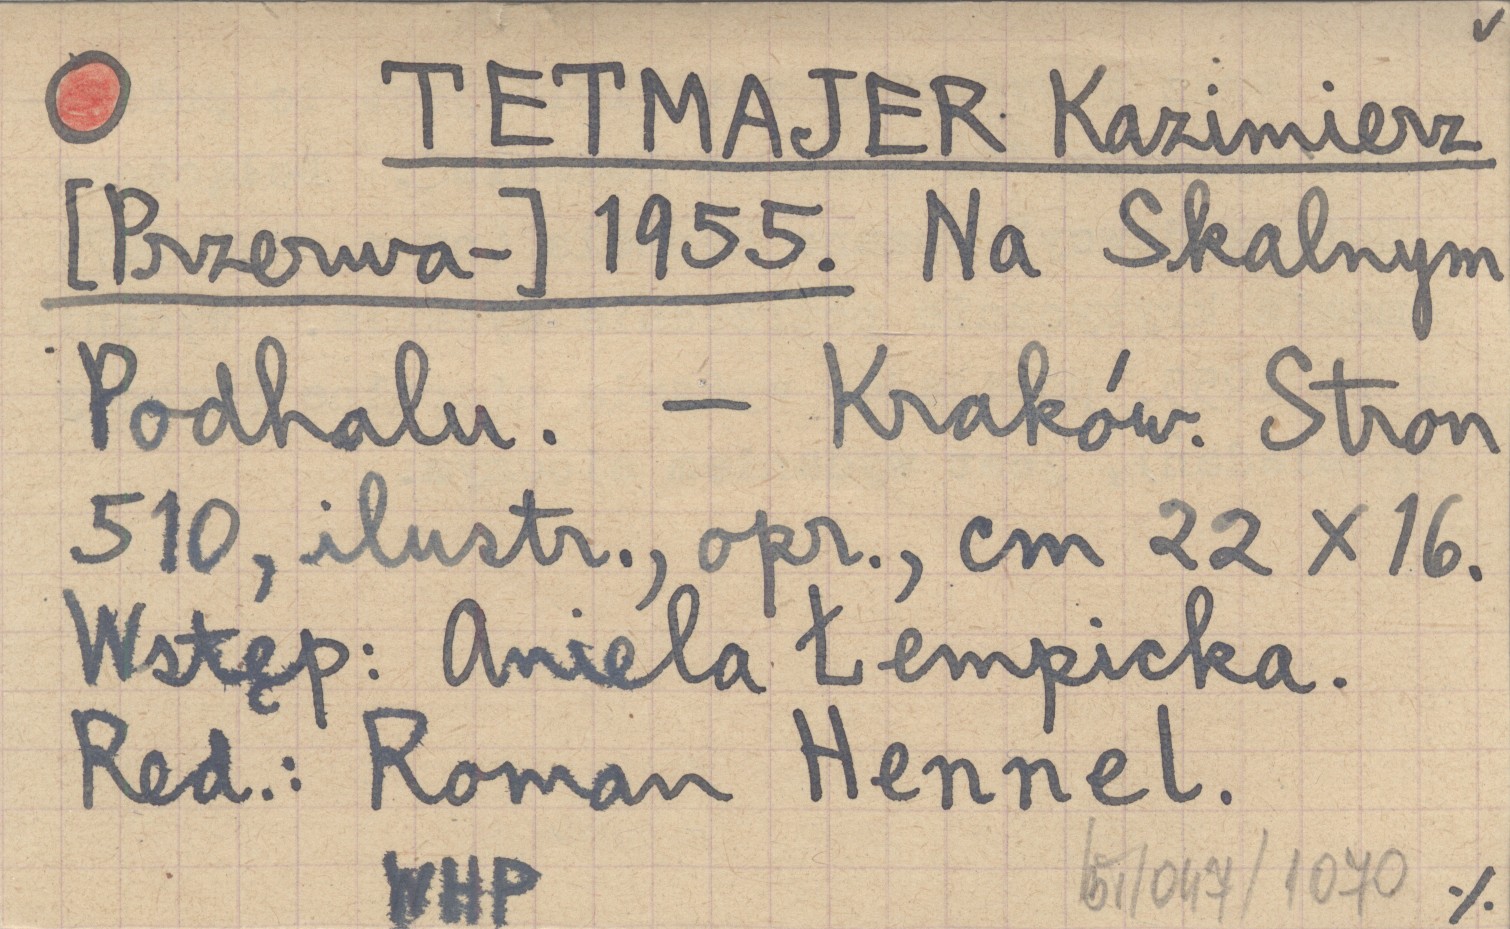 TETMAJER Kazimierz
[Przerwa-] 1955. Na Skalnym
Podhalu. — Kraków. Stron
510, ilustr., opr., cm 22 x 16.
Wstęp: Aniela Łempicka.
Red.: Roman Hennel.
WHP /047/1070 ./.